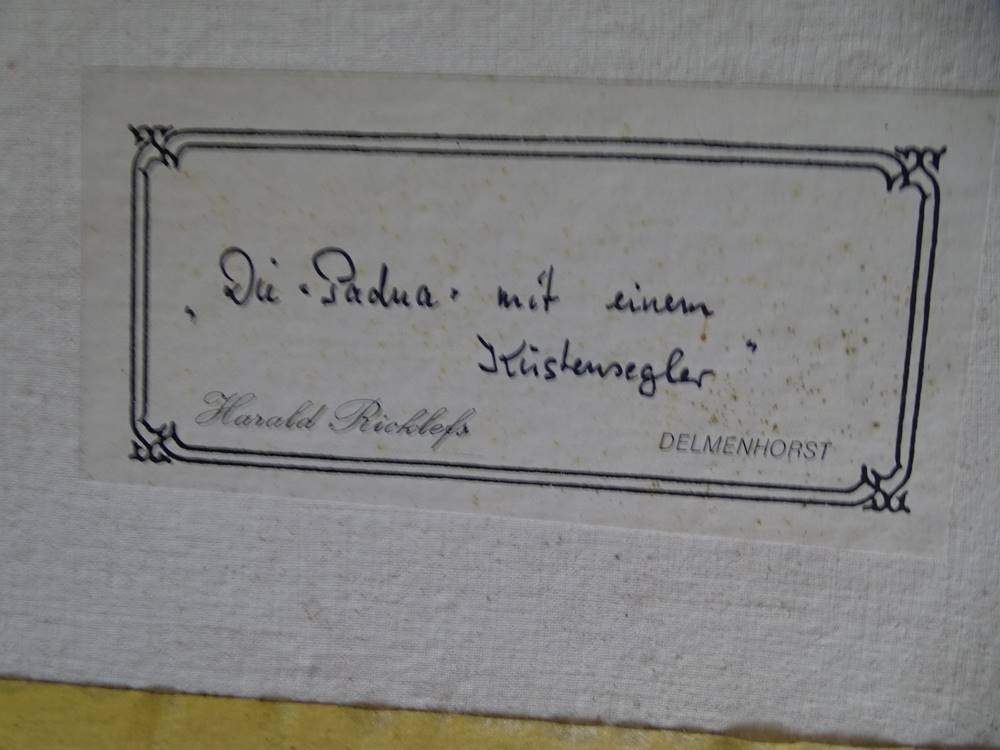 „Die "Padua" mit einem
Küstensegler"
Harald Ricklefs
DELMENHORST